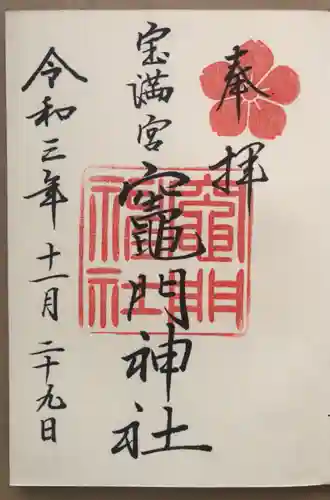 奉拝
宝満宮
竈門神社
竈門神社
令和三年十一月二十九日